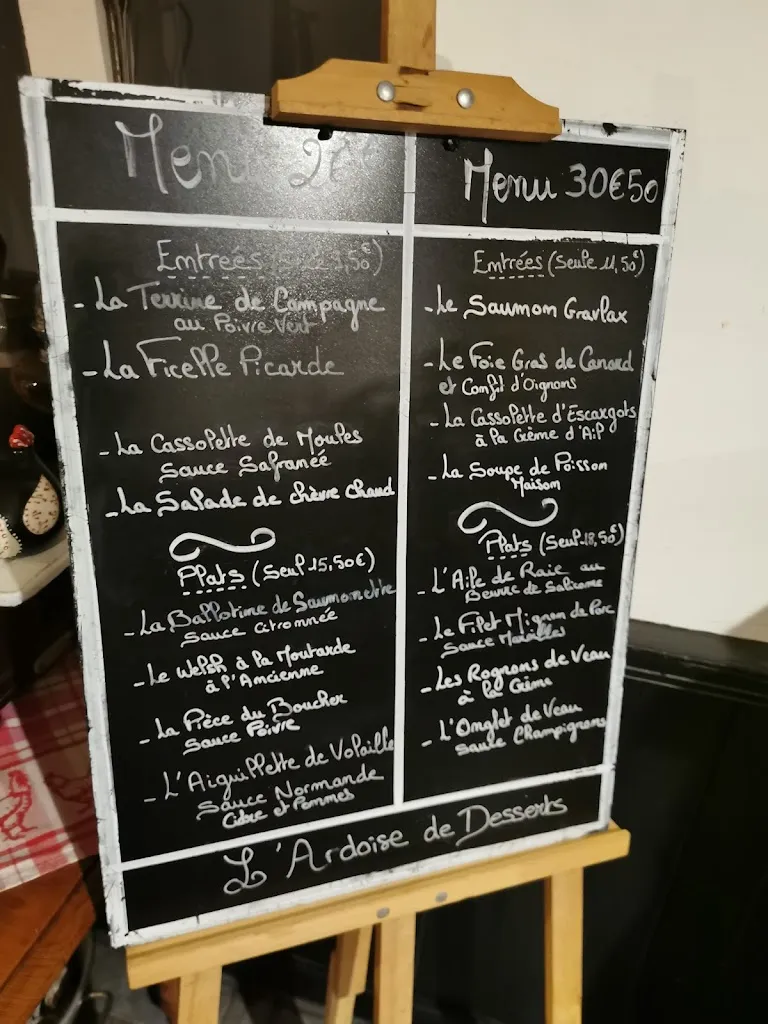 Menu
Entrées
- La Terrine de Campagne
au Poivre Vert
- La Ficelle Picarde
- La Cassolette de Moules
Sauce Safranée
- La Salade de chèvre chaud
Plats (Seul 15,50€)
- La Ballotine de Saumonette
Sauce Citronnée
- Le Welsh à la Moutarde
à l'Ancienne
- La Pièce du Boucher
Sauce Poivre
- L'Aiguillette de Volaille
Sauce Normande
Cidre et Pommes
Menu 30€50
Entrées (Seule 11,50€)
- Le Saumon Gravlax
- Le Foie Gras de Canard
et Confit d'Oignons
- La Cassolette d'Escargots
à la Crème d'Ail
- La Soupe de Poisson
Maison
Plats (Seul 18,50€)
- L'Aile de Raie au
Beurre de Salicorne
- Le Filet Mignon de Porc
Sauce Maroilles
- Les Rognons de Veau
à la Crème
- L'Onglet de Veau
Sauce Champignons
L'Ardoise de Desserts